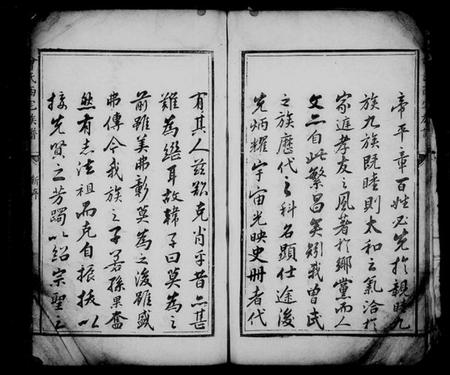 帝平章百姓必先於親睦九
族九族既睦則太和之氣洽於
家庭孝友之風著於鄉黨而人
文亦自此繁昌矣矧我曾氏
之族歷代之科名顯仕途後
先炳耀宇宙光映史冊者代
有其人茲欲克肖乎昔亦甚
難為繼耳故韓子曰莫為之
前雖美弗彰莫為之後雖盛
弗傳今我族之子若孫果奮
然有志法祖而克自振拔以
接先賢之芳躅以紹宗聖之
氏南宅族譜
新序